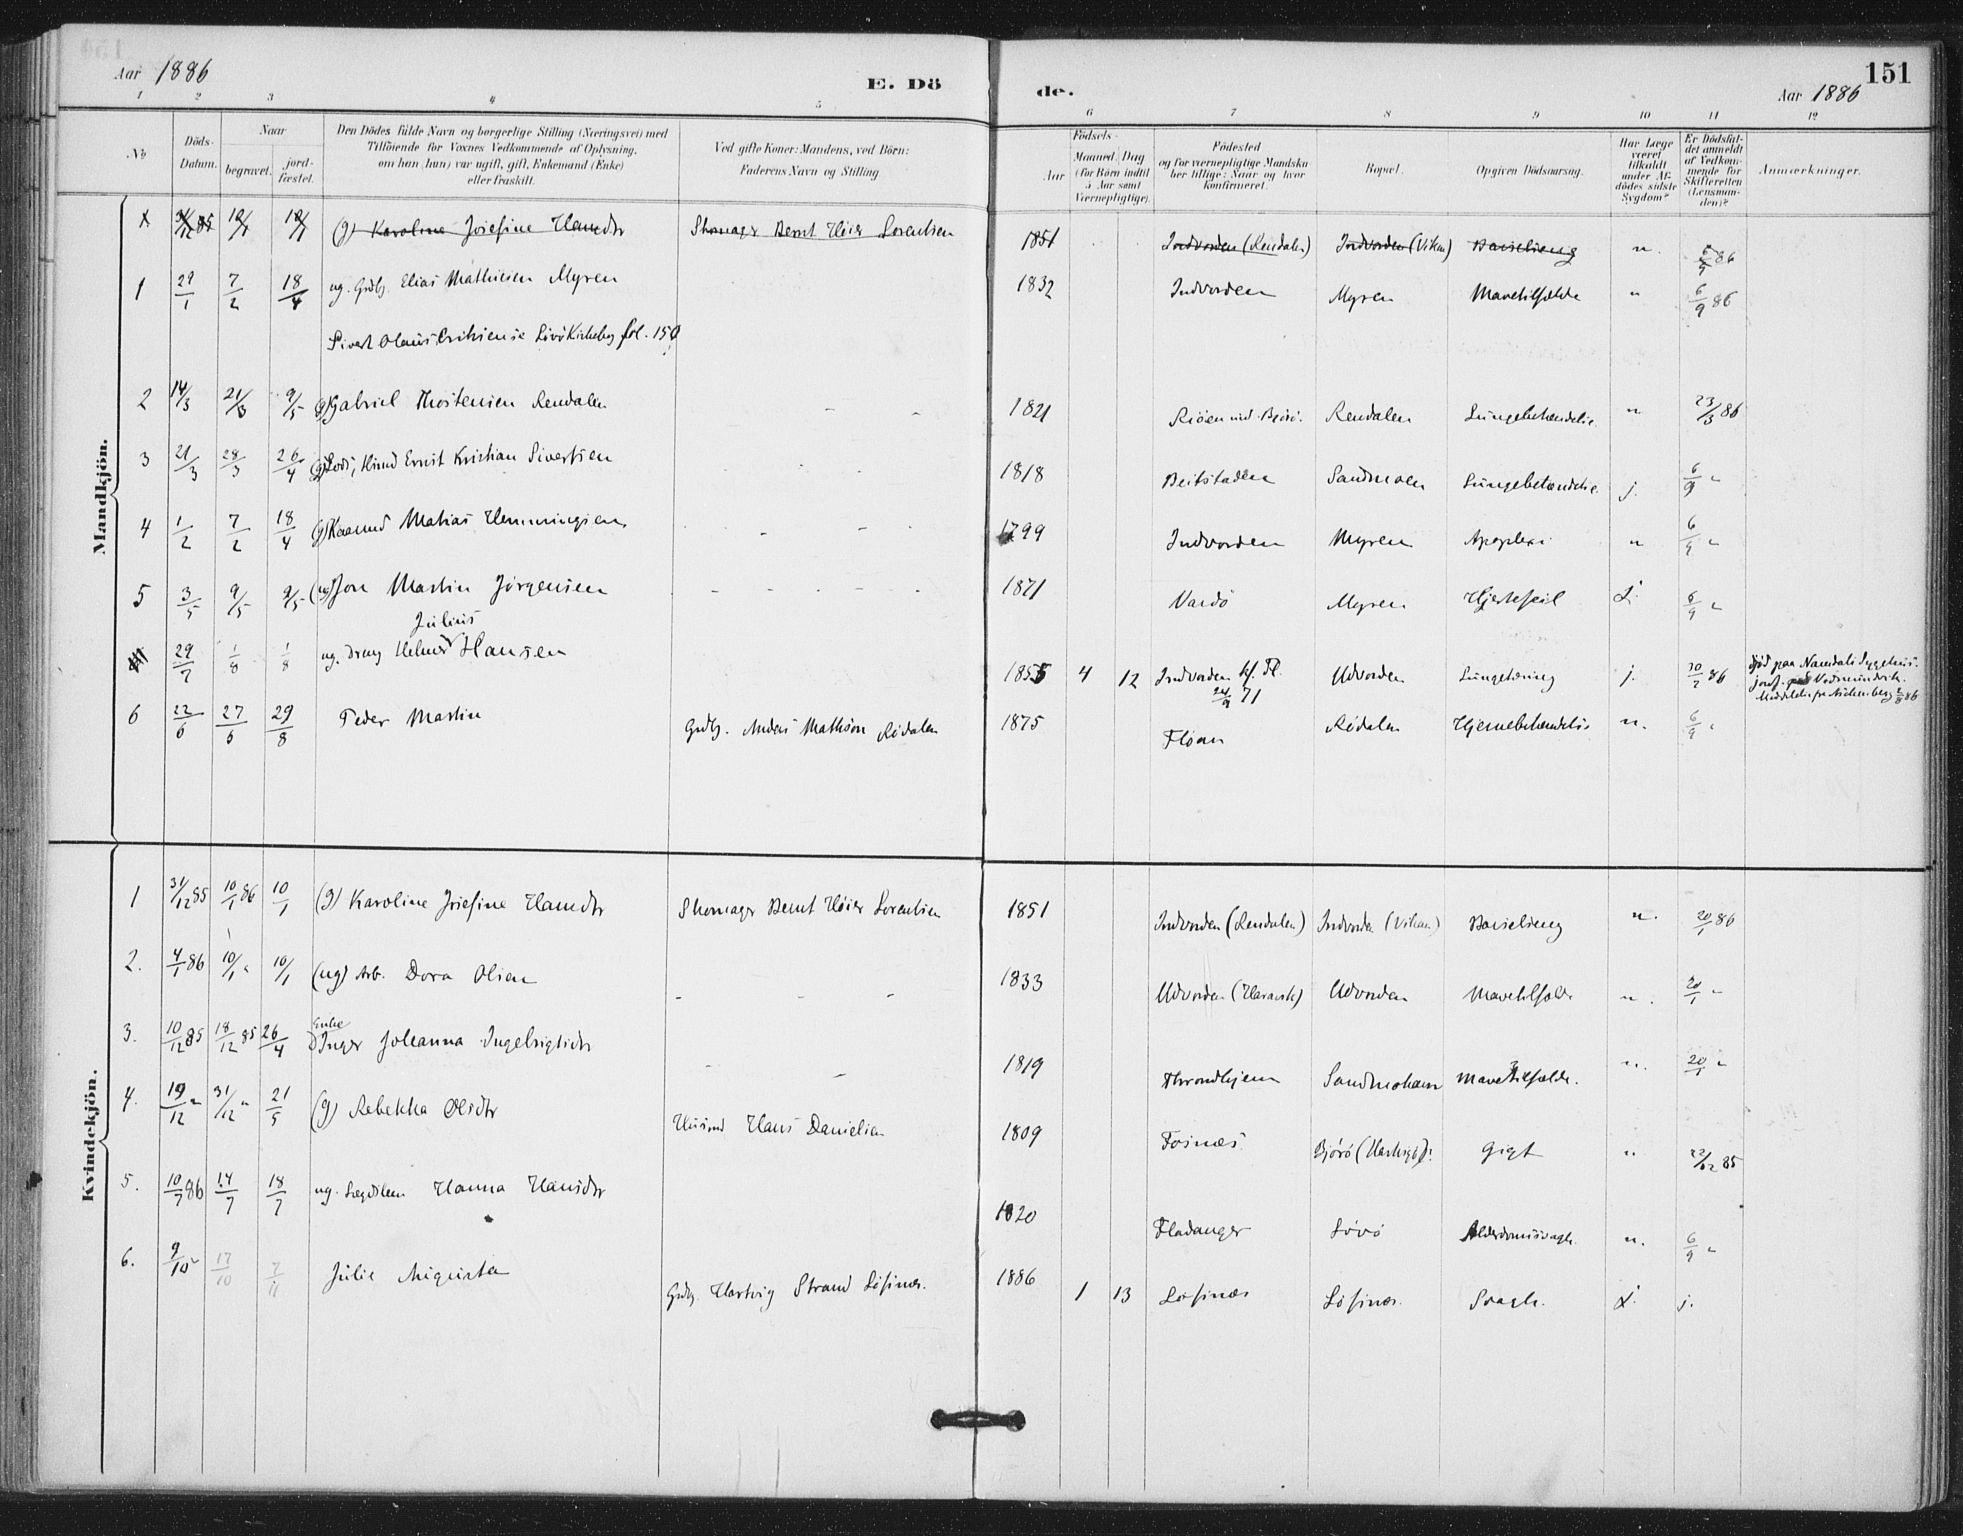 Aar 1886
E. Dö
de.
151
Aar 1886
1 2 3 4 5 6 7 8 9 10 11 12
No
Döds-Datum.
Naar
begravet.
jord-fæstet.
Den Dödes fulde Navn og borgerlige Stilling (Næringsvei) med
Tilföiende for Voxnes Vedkommende af Oplysning,
om han (hun) var ugift, gift, Enkemand (Enke)
eller fraskilt.
Ved gifte Koner: Mandens, ved Börn:
Faderens Navn og Stilling
Födsels-
Aar
Maaned. Dag
(for Börn indtil
5 Aar samt
Værnepligtige).
Födested
og for værnepligtige Mandska
ber tillige: Naar og hvor
konfirmeret.
Bopæl.
Opgiven Dödsaarsag.
Har Læge
været
tilkaldt
under Af-
dödes sidste
Sygdom?
Er Dödsfal-
det anmeldt
af Vedkom-
mende for
Skifteretten
(Lensman-
den)?
Anmærkninger.
Mandkjön.
31/12 85 10/1 10/1 (g) Karoline Josefine Hansdtr Skomager Bernt Höier Lorentsen 1851 Indvorden (Rendalen) Indvorden (Vikan) Barselseng n. 86
1 29/1 7/2 18/4 ug. Grdbr. Elias Mathisen Myren 1832 Indvorden Myren Mavetilfælde " 6/9 86
Sivert Olaus Eriksen se Lövö Kirkebog fol. 150
2 14/3 21/3 9/5 (g) Gabriel Thorstensen Rendalen 1821 Rendalen Lungebetændelse " 23/3 86
3 21/3 28/3 26/4 Ernst Kristian Sivertsen 1818 Beitstaden Sandmoen Lungebetændelse. j. 6/9 "
4 1/2 7/2 18/4 (g) Kaarmd Matias Hemmingsen 1799 Indvorden Myren Apoplexi " 6/9 "
5 3/5 9/5 9/5 (ug) Jon Martin Jörgensen 1871 Vardö Myren Hjertefeil j. 6/9 "
Julius
29/7 1/8 1/8 ug. Dreng Helmer Hansen 1855 4 12 Indvorden kf. Fl. Udvorden Lungetæring j. 30/7 86 död paa Namdals Sygehus.
24/9 71
6 22/6 27/6 29/8 Peder Martin Grdbr. Andreas Mathison Rödalen 1875 Floan Rödalen Hjernebetændelse n. 6/9 "
Kvindekjön.
1 31/12 85 10/1 86 10/1 (g) Karoline Josefine Hansdtr Skomager Bernt Höier Lorentsen 1851 Indvorden (Rendalen) Indvorden (Vikan) Barselseng n. 20/1 86
2. 4/1 86 10/1 " 10/1 (ug) Arb. Dora Olsen 1833 Udvorden Udvorden Mavetilfælde n. 20/1 "
Enke
3. 10/12 85 18/12 85 26/4 Inger Johanna Ingebrigtsdtr 1819 Throndhjem Sandmoen Mavetilfælde. n. 20/1 "
4. 19/12 " 31/12 " 21/5 (g) Rebekka Olsdtr Husmd Hans Danielsen 1809 Fosnæs Bjørø Gigt " 22/12 85
5. 10/7 86 14/7 18/7 ug. Lægdslem Hanna Hansdtr 1820 Fladanger Lövö Alderdomssvagh. n. 6/9 "
6. 9/10 17/10 7/11 Julie Augusta Grdbr. Hartvig Strand Löfsnæs. 1886 1 13 Löfsnæs Löfsnæs. Svagh. j. j.